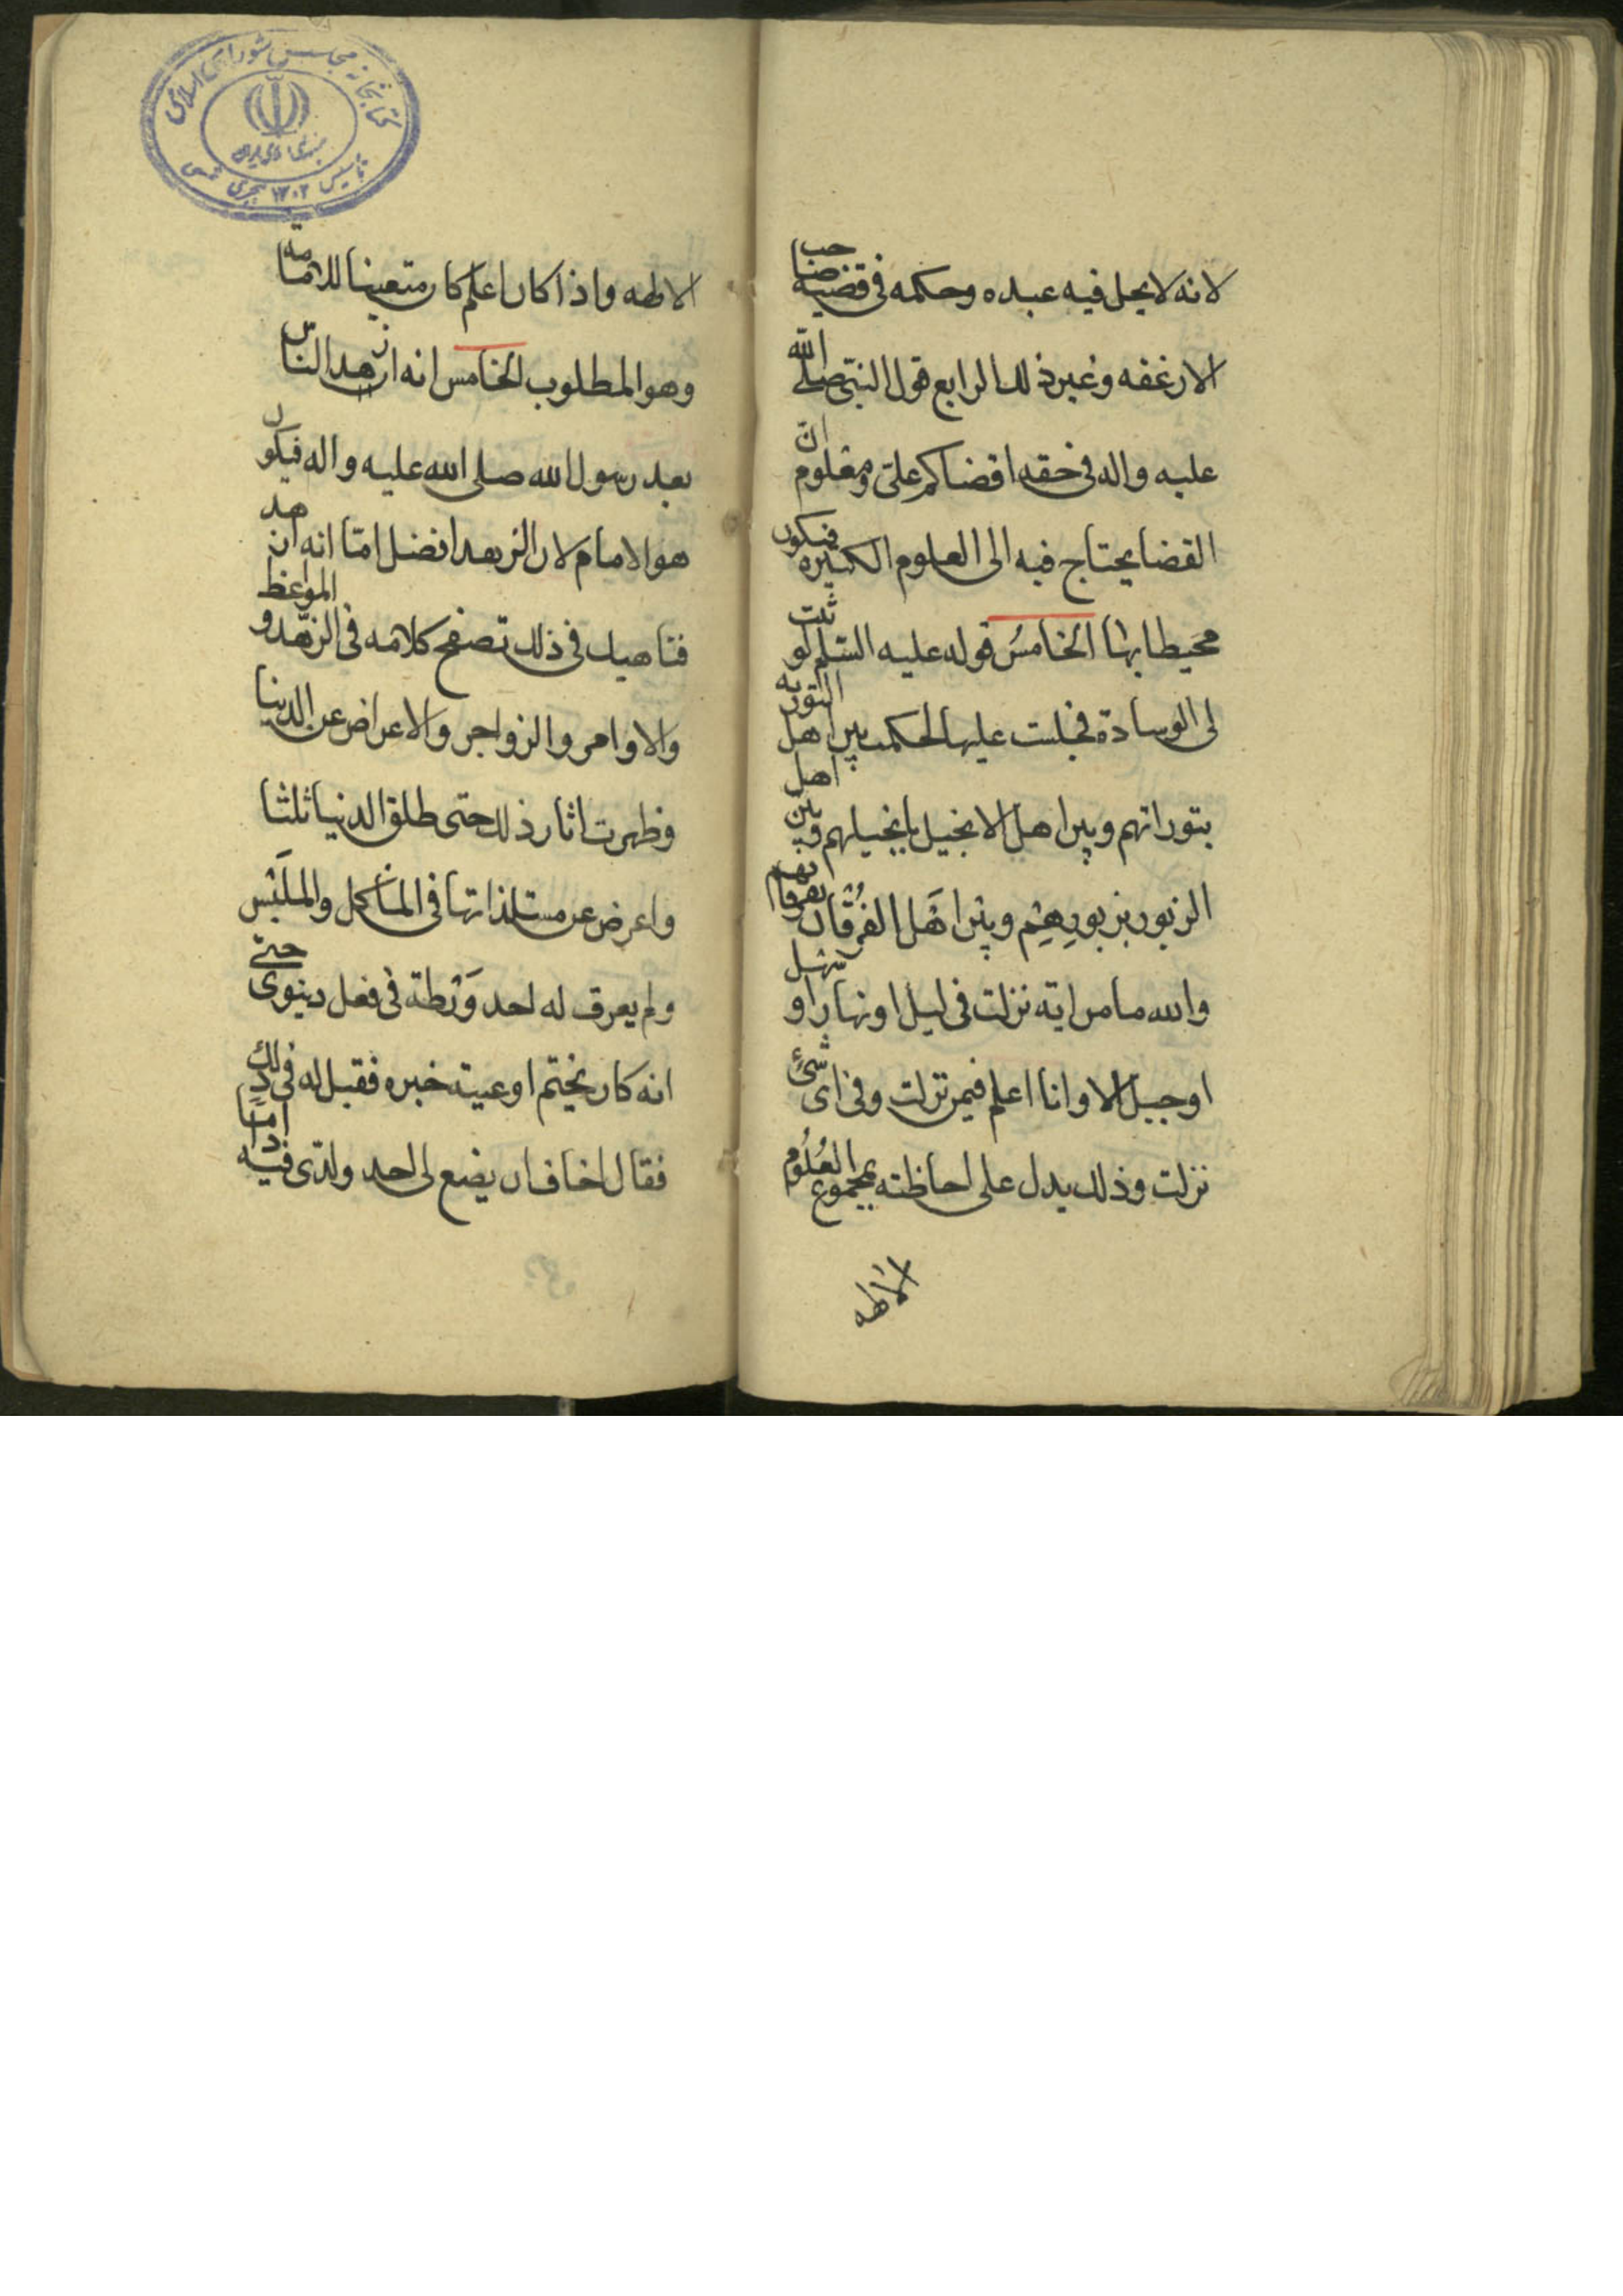 لانه لا يحل فيه عبده وحكمه فى قضية صاحب
الارغفه وغير ذلك الرابع قول النبى صلى الله
عليه واله فى حقه اقضاكم على ومعلوم ان
القضا يحتاج فيه الى العلوم الكثيره فيكون
محيطا بها الخامسُ قوله عليه السلم لو ثنت
لى الوسادة فجلست عليها لحكمت بين اهل التورية
بتوراتهم وبين اهل الانجيل بانجيلهم وبين اهل
الزبور بزبورِهِم وبين اهَل الفُرْقان بفرقانهم
والله ما من اية نزلت فى ليل او نهار او سهل
او جبل الا وانا اعلم فيمن نزلت وفى اى شئ
نزلت وذلك يدل على احاطته بمجموع العُلُوم
الالهه
الالهه واذا كان اعلم كان متعينا للامامة
وهو المطلوب الخامس انه ازهد الناس
بعد رسول الله صلى الله عليه واله فيكون
هو الامام لان الازهد افضل امّا انه ازهد
فناهيك فى ذلك تصفح كلامه فى الزهد و المواعظ
والاوامر والزواجر والاعراض عن الدنيا
وظهرت اثار ذلك حتى طلق الدنيا ثلثا
واعرض عن مستلذاتها فى المأكل والملَبْس
ولم يعرف له احد وَرْطة فى فعل دنيوى حتى
انه كان يختم اوعية خبزه فقيل له فى ذلك
فقال اخاف ان يضع لى احد ولدىّ فيه اداما
كتابخانه مجلس شوراى اسلامى
تأسيس ١٣٠٢ هجرى شمسى